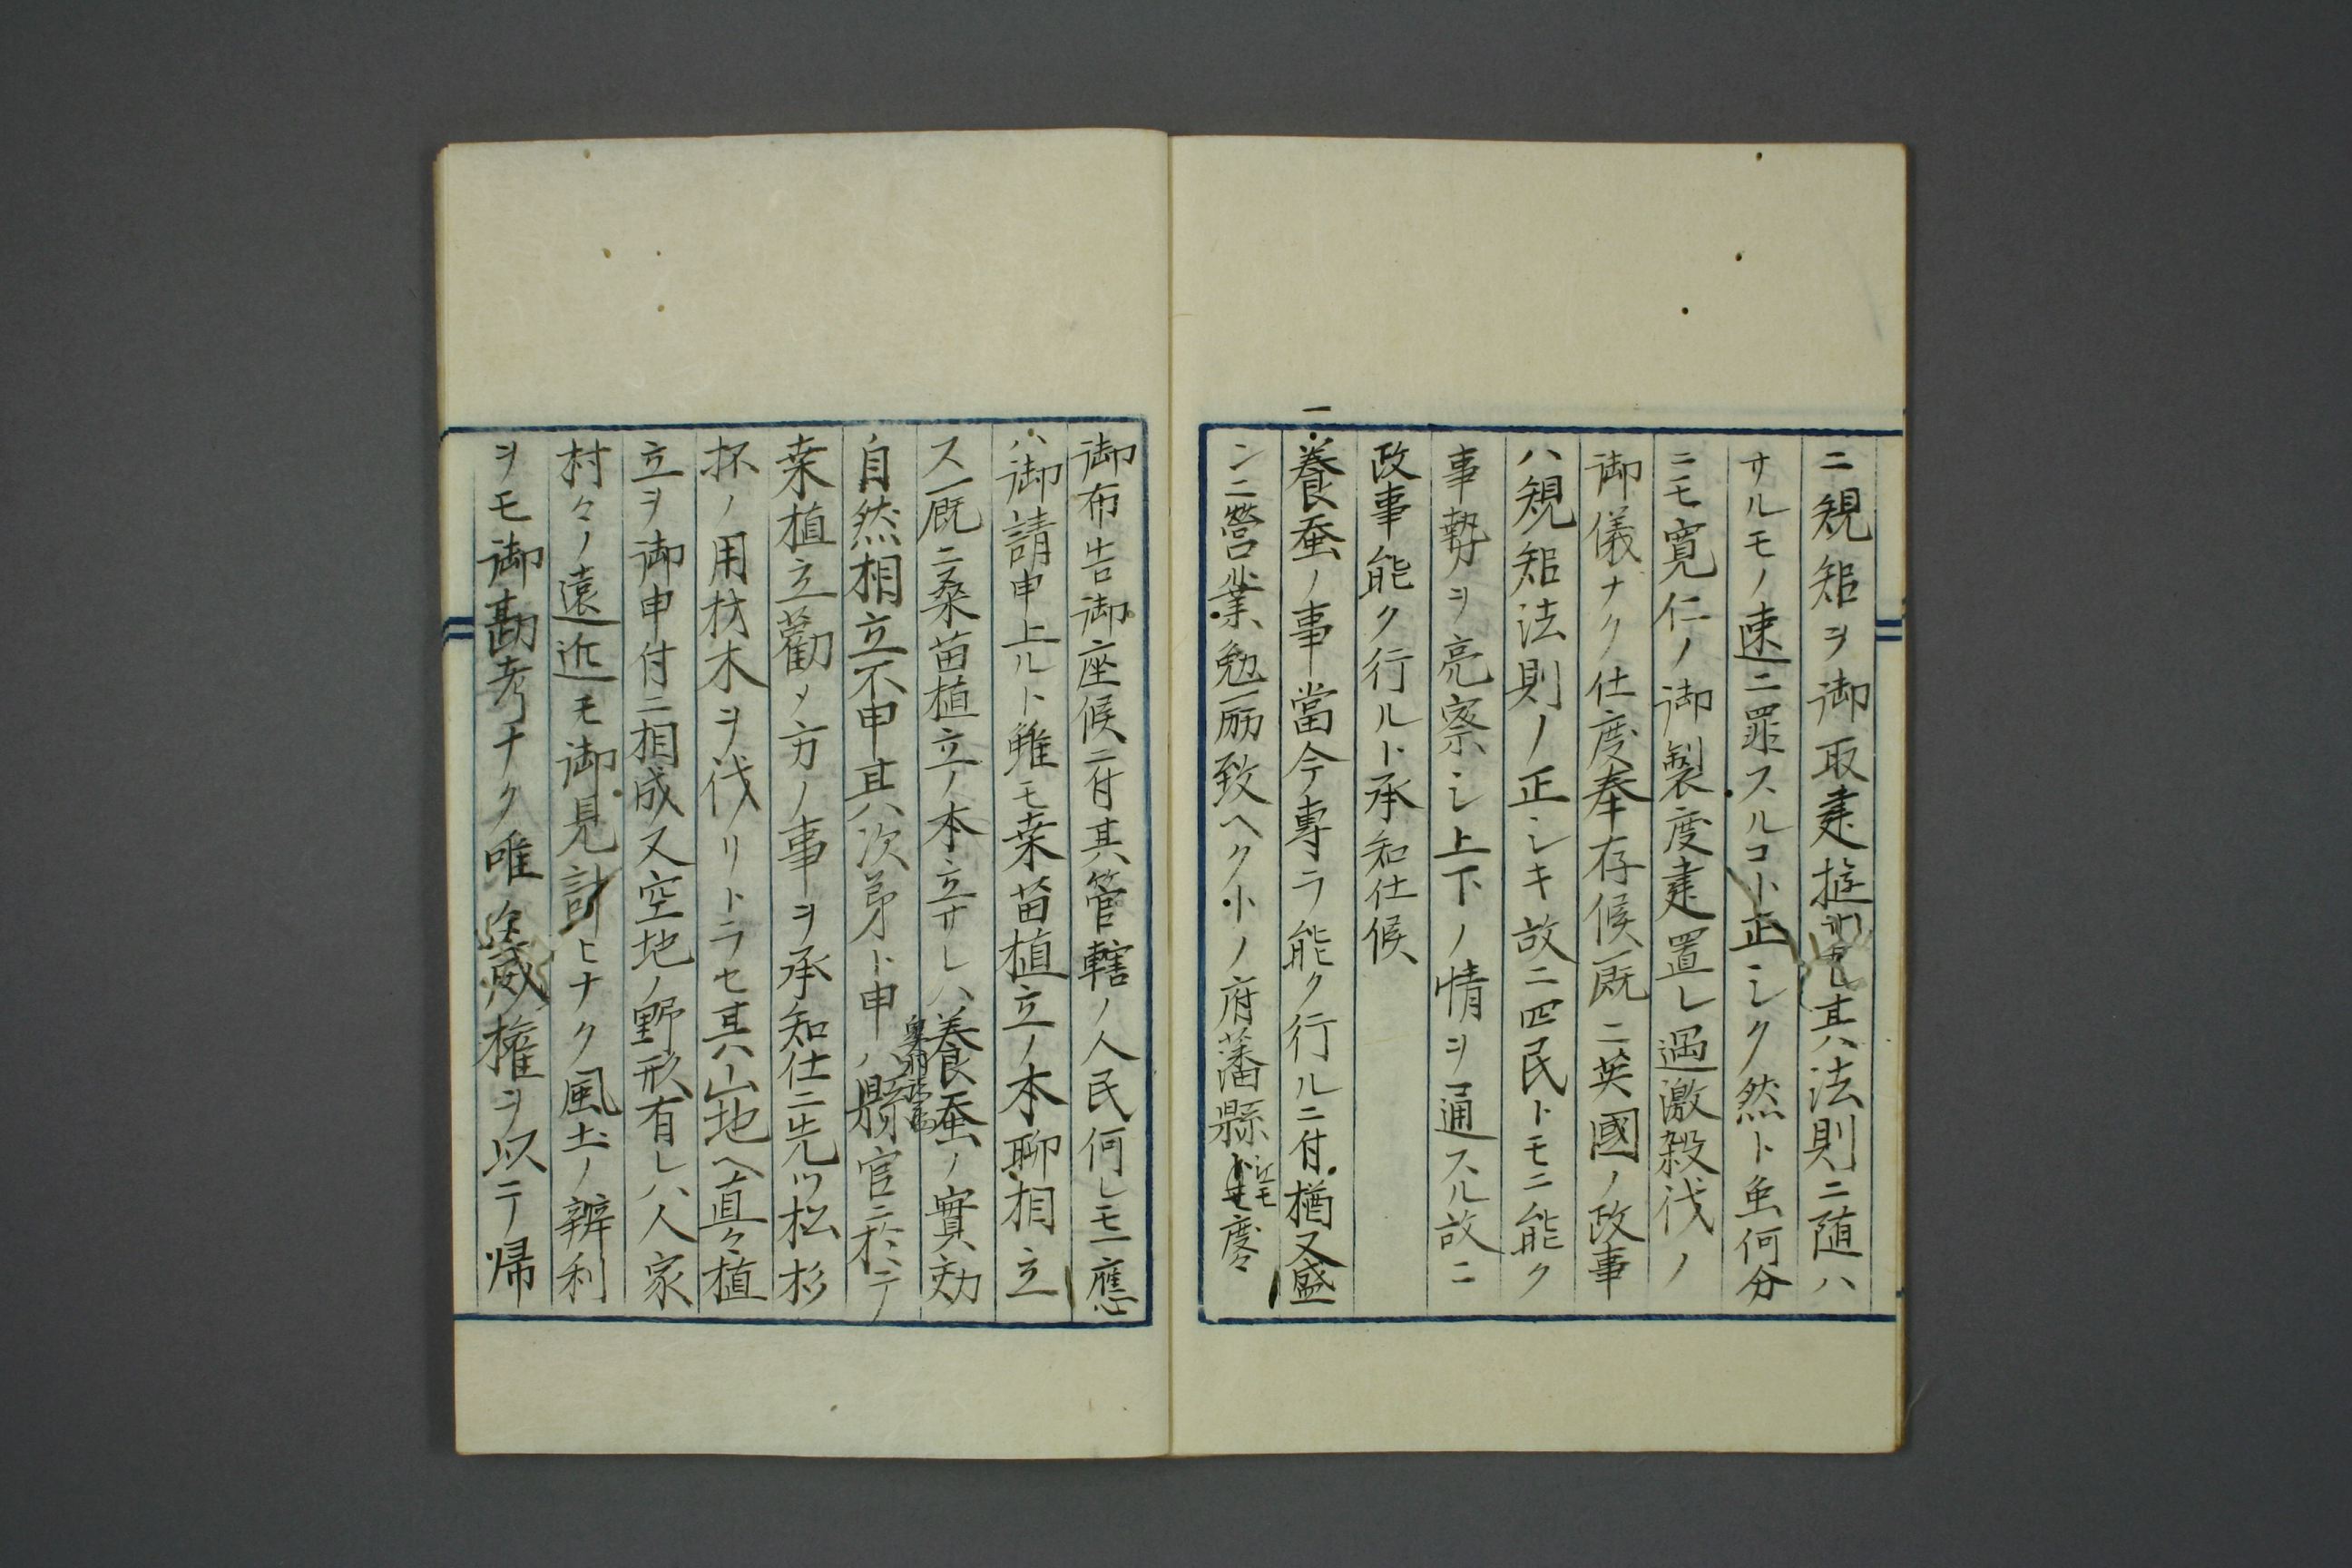 ニ規矩ヲ御取建掟其ノ法則ニ随ハ
サルモノ速ニ罪スルコト正シク然ト虽何分
ニモ寛仁ノ御製度建置レ過激殺伐ノ
御儀ナク仕度奉存候既ニ英國ノ政事
ハ規矩法則ノ正シキ故ニ四民トモニ能ク
事勢ヲ亮察シ上下ノ情ヲ通スル故ニ
政事能ク行ルト承知仕候
一養蚕ノ事當今専ラ能ク行ルニ付楢又盛
ンニ營業勉励致ヘクトノ府藩縣迠モ度々
御布告御座候ニ付其管轄ノ人民何レモ一應
ハ御請申上ルト雖モ桒苗植立ノ本聊相立
ス既ニ桑苗植立ノ本立サレハ養蚕ノ實効
自然相立不申其次第ト申ハ縣官ニ於テ
桒植立勸メ方ノ事ヲ承知仕ニ先ツ松杉
抔ノ用材木ヲ伐リトラセ其ノ山地ヘ直々植
立ヲ御申付ニ相成又空地ノ野形有レハ人家
村々ノ遠近モ御見計ヒナク風土ノ辨利
ヲモ御勘考ナク唯威権ヲ以テ帰